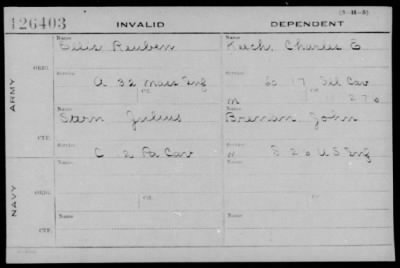 (3-H-5)
126403 INVALID DEPENDENT
Name Name
Ellis Reuben Keech, Charles E
ARMY
ORIG.
Service Service
A 32 Mass Inf 17 Ill Cav
Or. M 270
Name Name
Stern Julius Brennan John
CTF.
Service Service
C 2 Pa Cav 26 U S Inf
NAVY
ORIG.
Name Name
Or. Or.
CTF.
Name Name